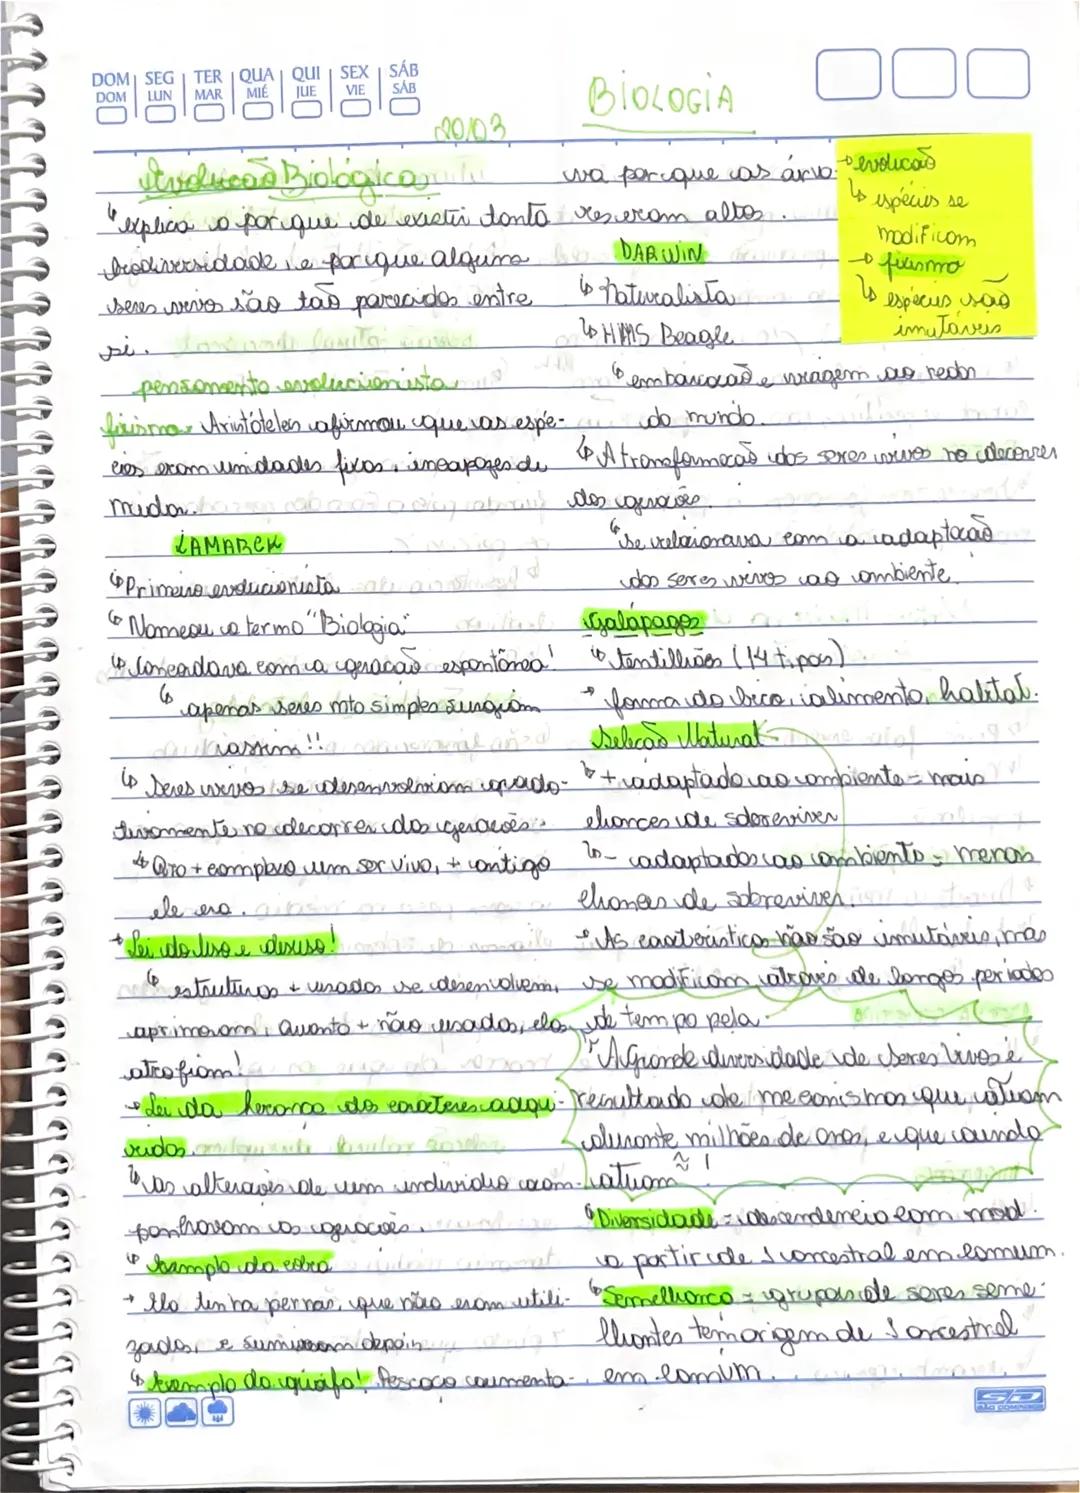 DOM SEG TER QUA QUI SEX SÁB
DOM LUN MAR MIÉ JUE VIE SÁB
BIOLOGIA
20/03
Evolução Biológica
explica o porque de existir tanta
biodiversidade, e porque alguns
seres vivos são tão parecidos entre
si.
pensamento evolucionista
fixismo Aristóteles afirmou que as espé-
cies eram unidades fixas, incapazes de
mudar.
LAMARCK
Primeiro evolucionista
Nomeou o termo "Biologia"
Concordava com a geração espontânea!
apenas seres mto simples surgiam
assim!!
Seres vivos se desenvolviam grada-
tivamente no decorrer das gerações.
Qto + complexo um ser vivo, + antigo
ele era.
Lei do uso e desuso!
estruturas + usadas se desenvolvem,
aprimoram, quanto + não usados, elas
atrofiam!
Lei da herança dos caracteres adqui-
ridos.
as alterações de um indivíduo acom-
panhavam as gerações.
Exemplo da cobra
Ela tinha pernas, que não eram utili-
zadas, e sumiram depois
Exemplo da girafa! Pescoço aumenta-
va porque as árvo-
res eram altas.
DARWIN
Naturalista
HMS Beagle
embarcação e viagem ao redor
do mundo.
A transformação dos seres vivos no decorrer
das gerações
se relacionava com a adaptação
dos seres vivos ao ambiente.
Galápagos
tentilhões (14 tipos)
forma do bico, alimento, habitat.
Seleção Natural
+ adaptado ao ambiente = mais
chances de sobreviver
- adaptados ao ambiente = menos
chances de sobreviver.
As características não são imutáveis, mas
se modificam através de longos períodos
de tempo pela
A Grande diversidade de seres vivos é
resultado de mecanismos que atuam
durante milhões de anos, e que ainda
atuam!
Diversidade = descendência com mod.
a partir de 1 ancestral em comum.
Semelhança = grupos de seres seme-
lhantes tem origem de 1 ancestral
em comum.
evolução
espécies se
modificam
fixismo
espécies são
imutáveis
SD
SÃO DOMINGOS